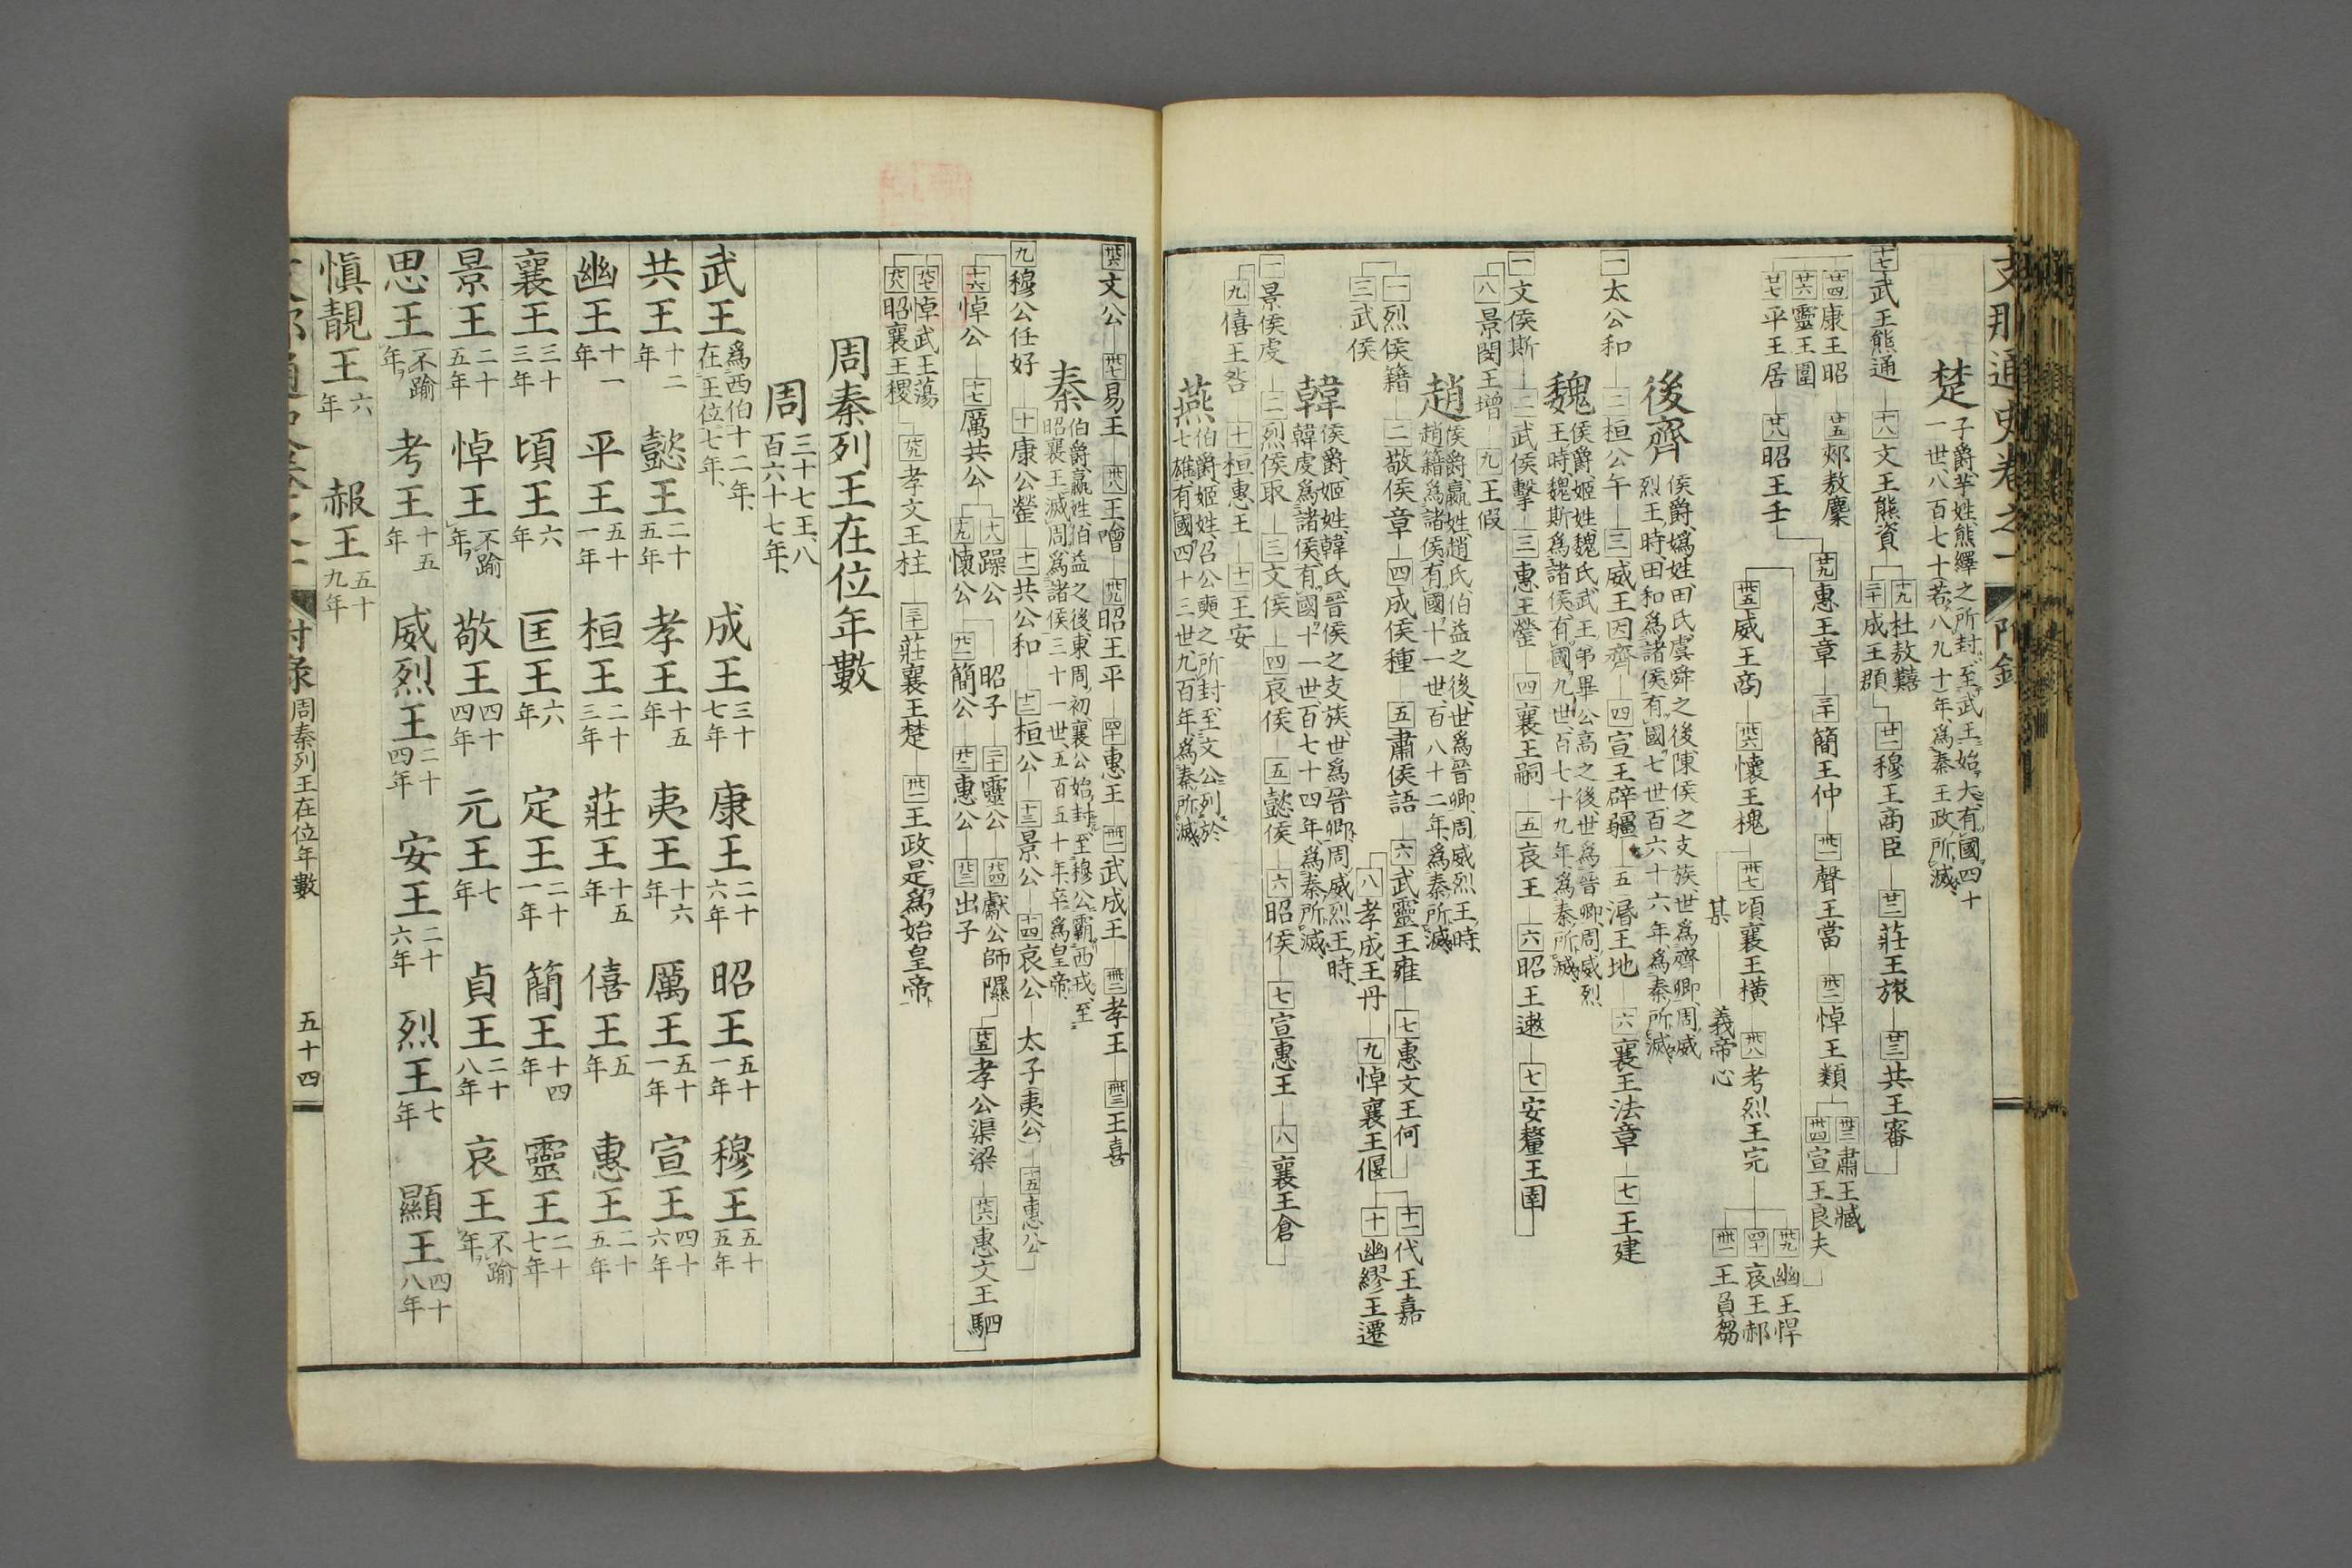 支那通史卷之一 附錄
楚 子爵、芈姓、熊繹之所封、至武王始大、有國四十
一世、八百七十(若八九十)年、爲秦王政所滅、
十七 武王熊通 十八 文王熊資 十九 杜敖囏
二十 成王頵 廿一 穆王商臣 廿二 莊王旅 廿三 共王審
廿四 康王昭 廿五 郟敖麇
廿六 靈王圍
廿七 平王居 廿八 昭王壬 廿九 惠王章 三十 簡王仲 卅一 聲王當 卅二 悼王類 卅三 肅王臧
卅四 宣王良夫
卅五 威王商 卅六 懷王槐 卅七 頃襄王橫 卅八 考烈王完 卅九 幽王悍
四十 哀王郝
卌一 王負芻
某 義帝心
後齊 侯爵、嬀姓、田氏、虞舜之後、陳侯之支族、世爲齊卿、周威
烈王時、田和爲諸侯、有國七世、百六十六年、爲秦所滅、
一 太公和 二 桓公午 三 威王因齊 四 宣王辟疆 五 湣王地 六 襄王法章 七 王建
魏 侯爵、姬姓、魏氏、武王弟畢公高之後、世爲晉卿、周威烈
王時、魏斯爲諸侯、有國九世、百七十九年、爲秦所滅、
一 文侯斯 二 武侯擊 三 惠王罃 四 襄王嗣 五 哀王 六 昭王遬 七 安釐王圉
八 景閔王增 九 王假
趙 侯爵、嬴姓、趙氏、伯益之後、世爲晉卿、周威烈王時、
趙籍爲諸侯、有國十一世、百八十二年、爲秦所滅、
一 烈侯籍 二 敬侯章 四 成侯種 五 肅侯語 六 武靈王雍 七 惠文王何
三 武侯
八 孝成王丹 九 悼襄王偃 十一 代王嘉
十 幽繆王遷
韓 侯爵、姬姓、韓氏、晉侯之支族、世爲晉卿、周威烈王時、
韓虔爲諸侯、有國十一世、百七十四年、爲秦所滅、
一 景侯虔 二 烈侯取 三 文侯 四 哀侯 五 懿侯 六 昭侯 七 宣惠王 八 襄王倉
九 僖王咎 十 桓惠王 十一 王安
燕 伯爵、姬姓、召公奭之所封、至文公列於
七雄、有國四十三世、九百年、爲秦所滅、
卅六 文公 卅七 易王 卅八 王噲 卅九 昭王平 四十 惠王 卌一 武成王 卌二 孝王 卌三 王喜
秦 伯爵、嬴姓、伯益之後、東周初、襄公始封、至穆公霸西戎、至
昭襄王滅周、爲諸侯三十一世、五百五十年、卒爲皇帝、
九 穆公任好 十 康公罃 十一 共公和 十二 桓公 十三 景公 十四 哀公 太子(夷公) 十五 惠公
十六 悼公 十七 厲共公 十八 躁公
十九 懷公 昭子 二十 靈公 廿四 獻公師隰 廿五 孝公渠梁 廿六 惠文王駟
廿一 簡公 廿二 惠公 廿三 出子
廿七 悼武王蕩
廿八 昭襄王稷 廿九 孝文王柱 三十 莊襄王楚 卅一 王政、是爲始皇帝、
周秦列王在位年數
周 三十七王、八百六十七年、
武王 爲西伯十二年、在王位七年、 成王 三十七年 康王 二十六年 昭王 五十一年 穆王 五十五年
共王 十二年 懿王 二十五年 孝王 十五年 夷王 十六年 厲王 五十一年 宣王 四十六年
幽王 十一年 平王 五十一年 桓王 二十三年 莊王 十五年 僖王 五年 惠王 二十五年
襄王 三十三年 頃王 六年 匡王 六年 定王 二十一年 簡王 十四年 靈王 二十七年
景王 二十五年 悼王 不踰年、 敬王 四十四年 元王 七年 貞王 二十八年 哀王 不踰年、
思王 不踰年、 考王 十五年 威烈王 二十四年 安王 二十六年 烈王 七年 顯王 四十八年
愼靚王 六年 赧王 五十九年
附錄 周秦列王在位年數 五十四